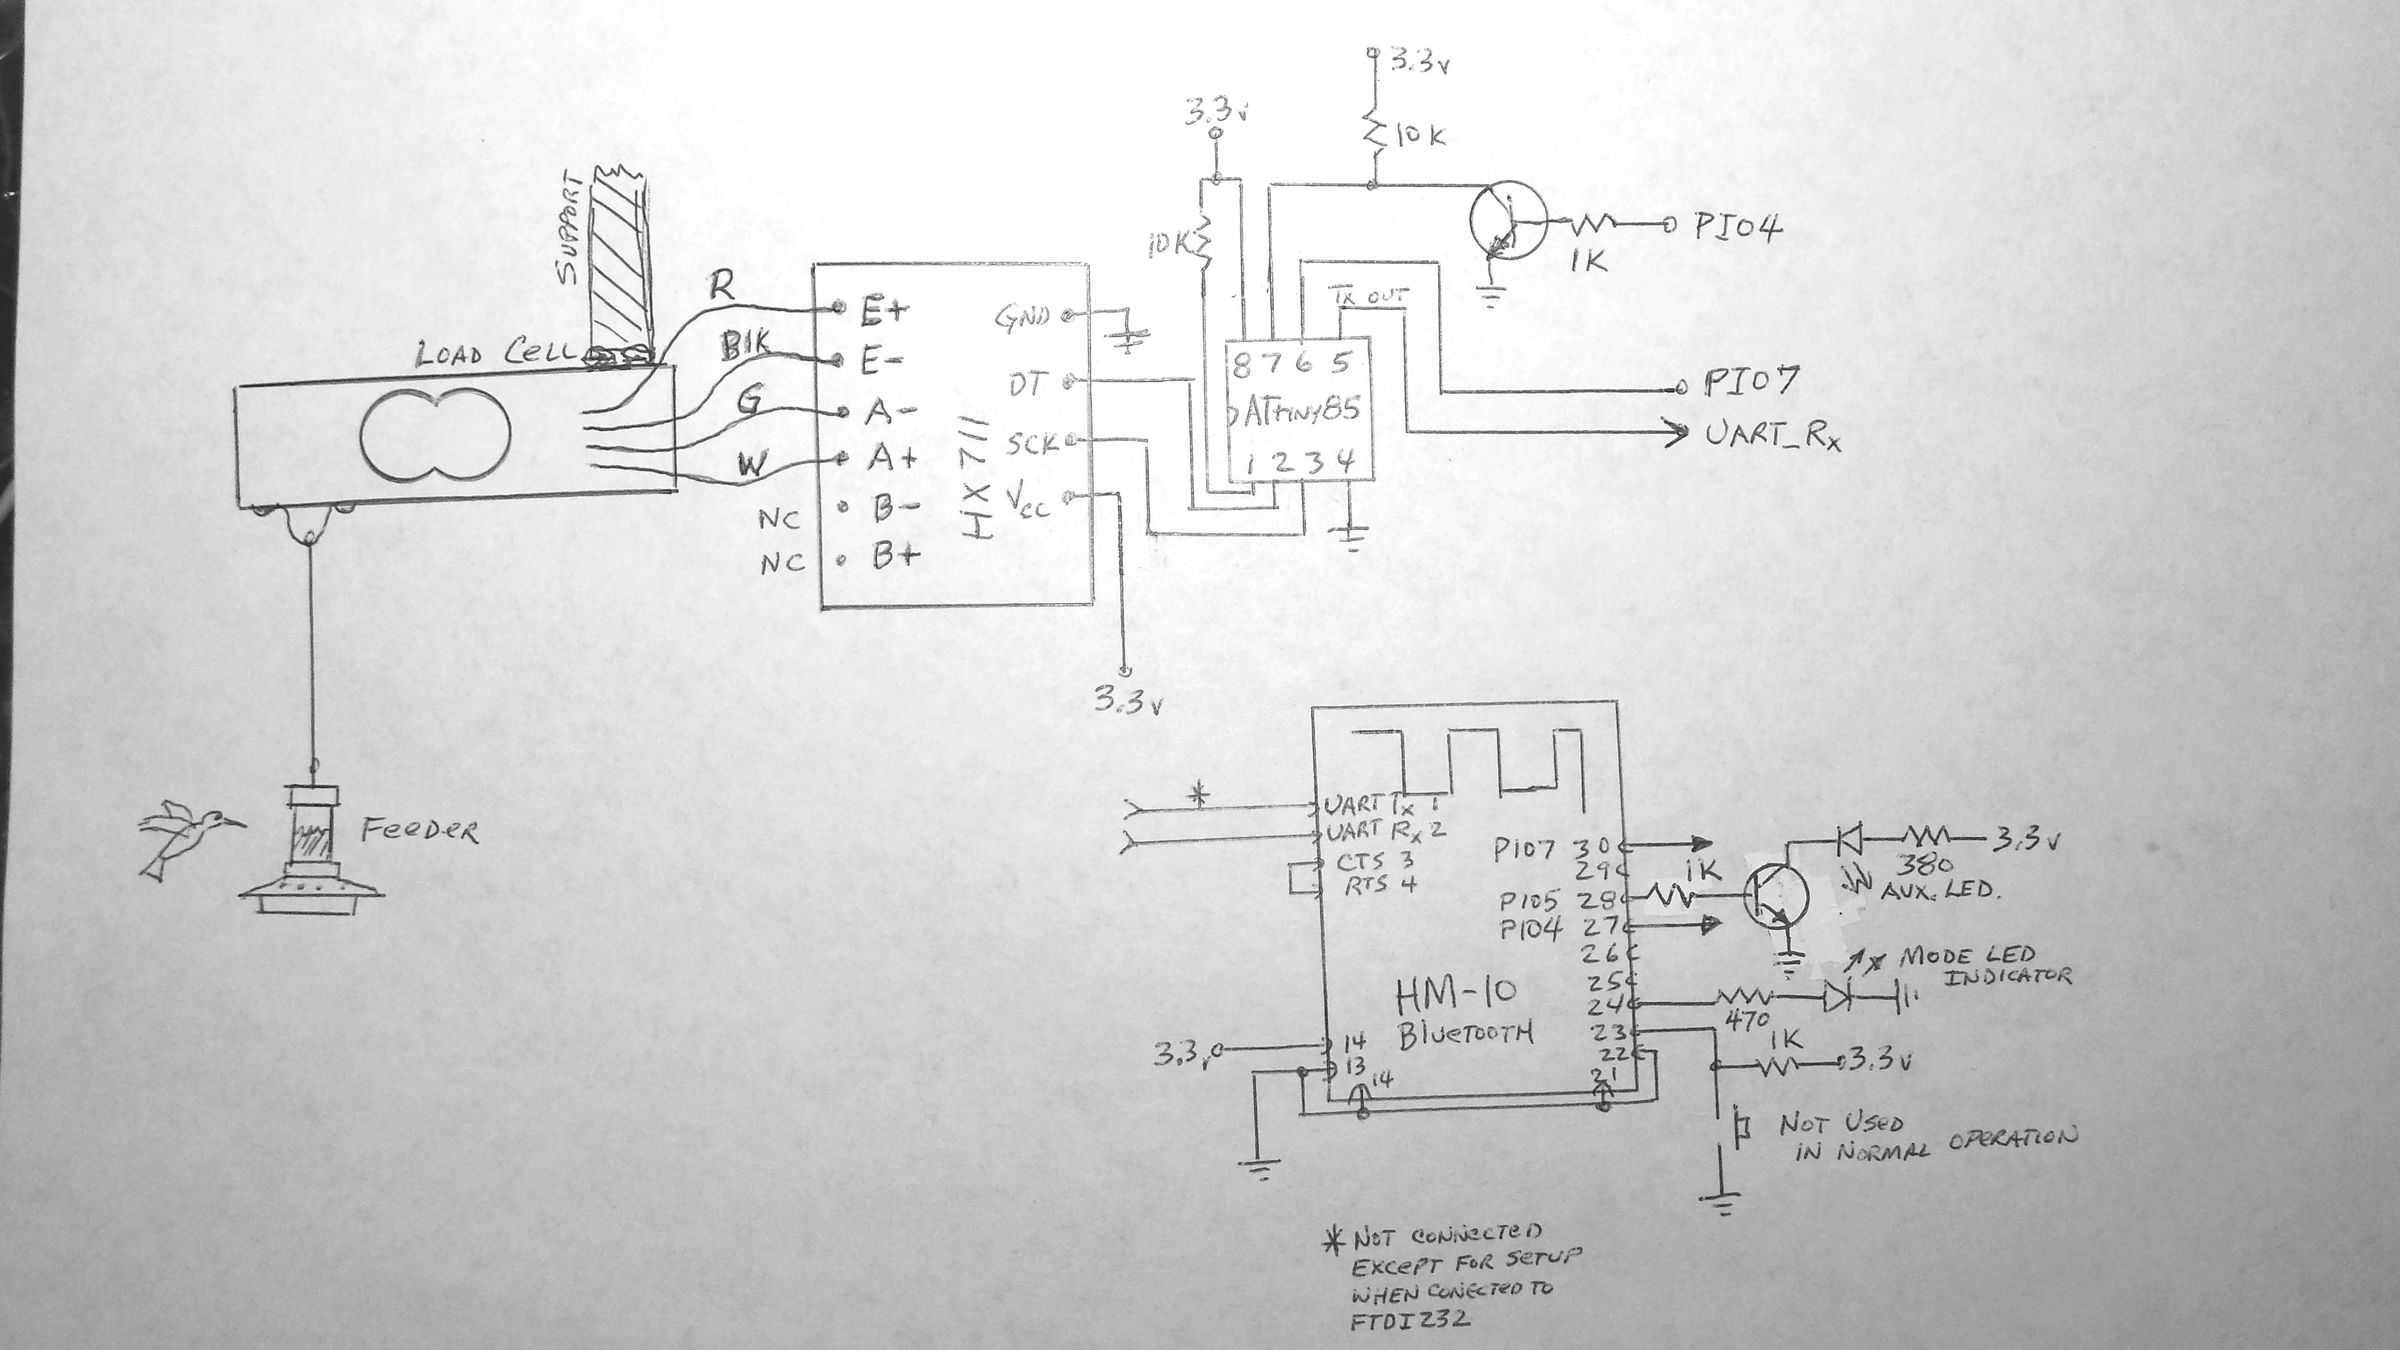 3.3v
10K
3.3v
10K
PIO4
1K
SUPPORT
LOAD CELL
R
BlK
G
W
NC
NC
E+
E-
A-
A+
B-
B+
HX711
GND
DT
SCK
Vcc
3.3v
Tx OUT
8 7 6 5
ATTINY85
1 2 3 4
PIO7
UART_Rx
FeeDER
* UART Tx 1
UART Rx 2
CTS 3
RTS 4
PIO7 30
29
PIO5 28
PIO4 27
26
25
24
23
22
21
HM-10
BlUeTOOTH
3.3v
14
13
14
1K
380
3.3v
AUX. LED.
MODE LED
INDICATOR
470
1K
3.3v
NOT USED
IN NORMAL OPERATION
* NOT CONNECTED
EXCEPT FOR SETUP
WHEN CONECTED TO
FTDI232